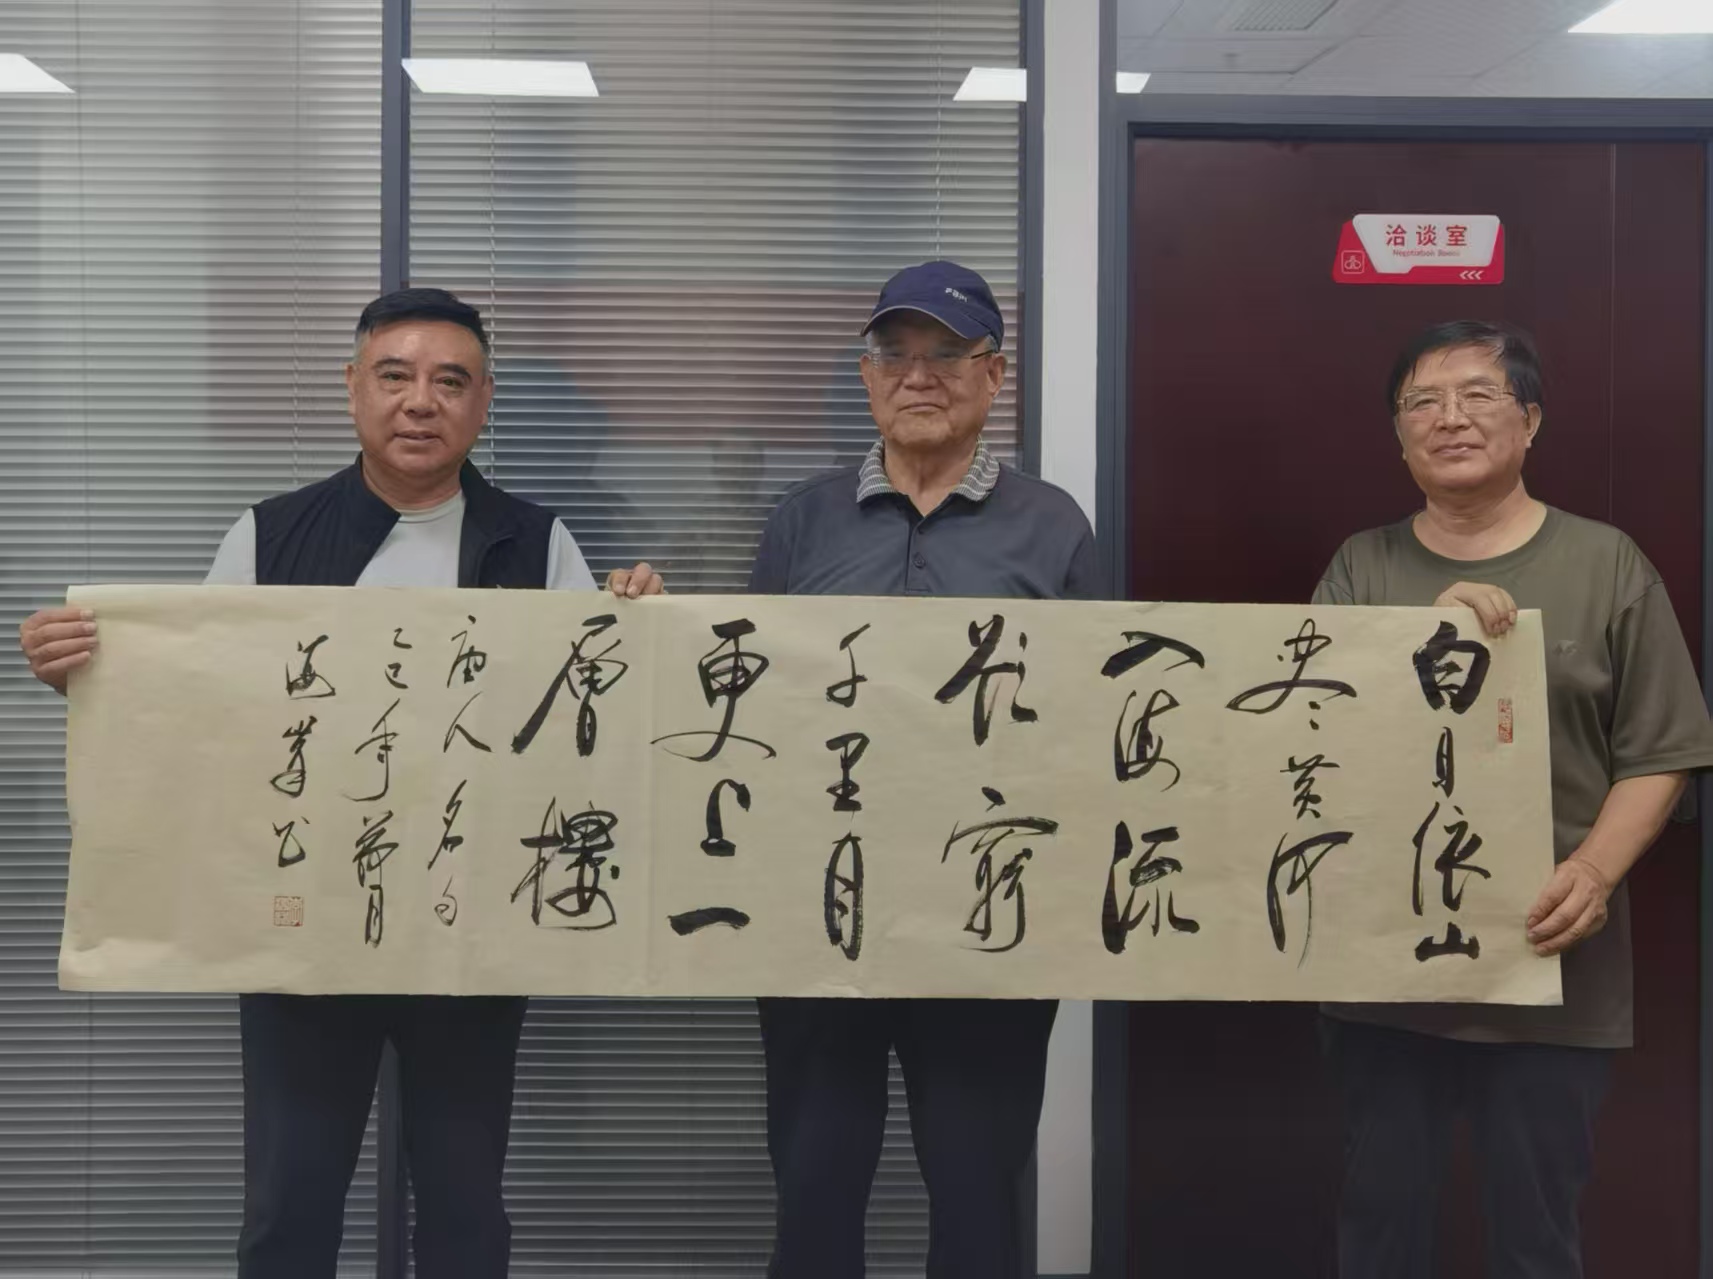 洽谈室
Negotiation Room
白日依山
尽黄河
入海流
欲窮
千里目
更上一
層樓
唐人名句
乙巳年月
海峯书